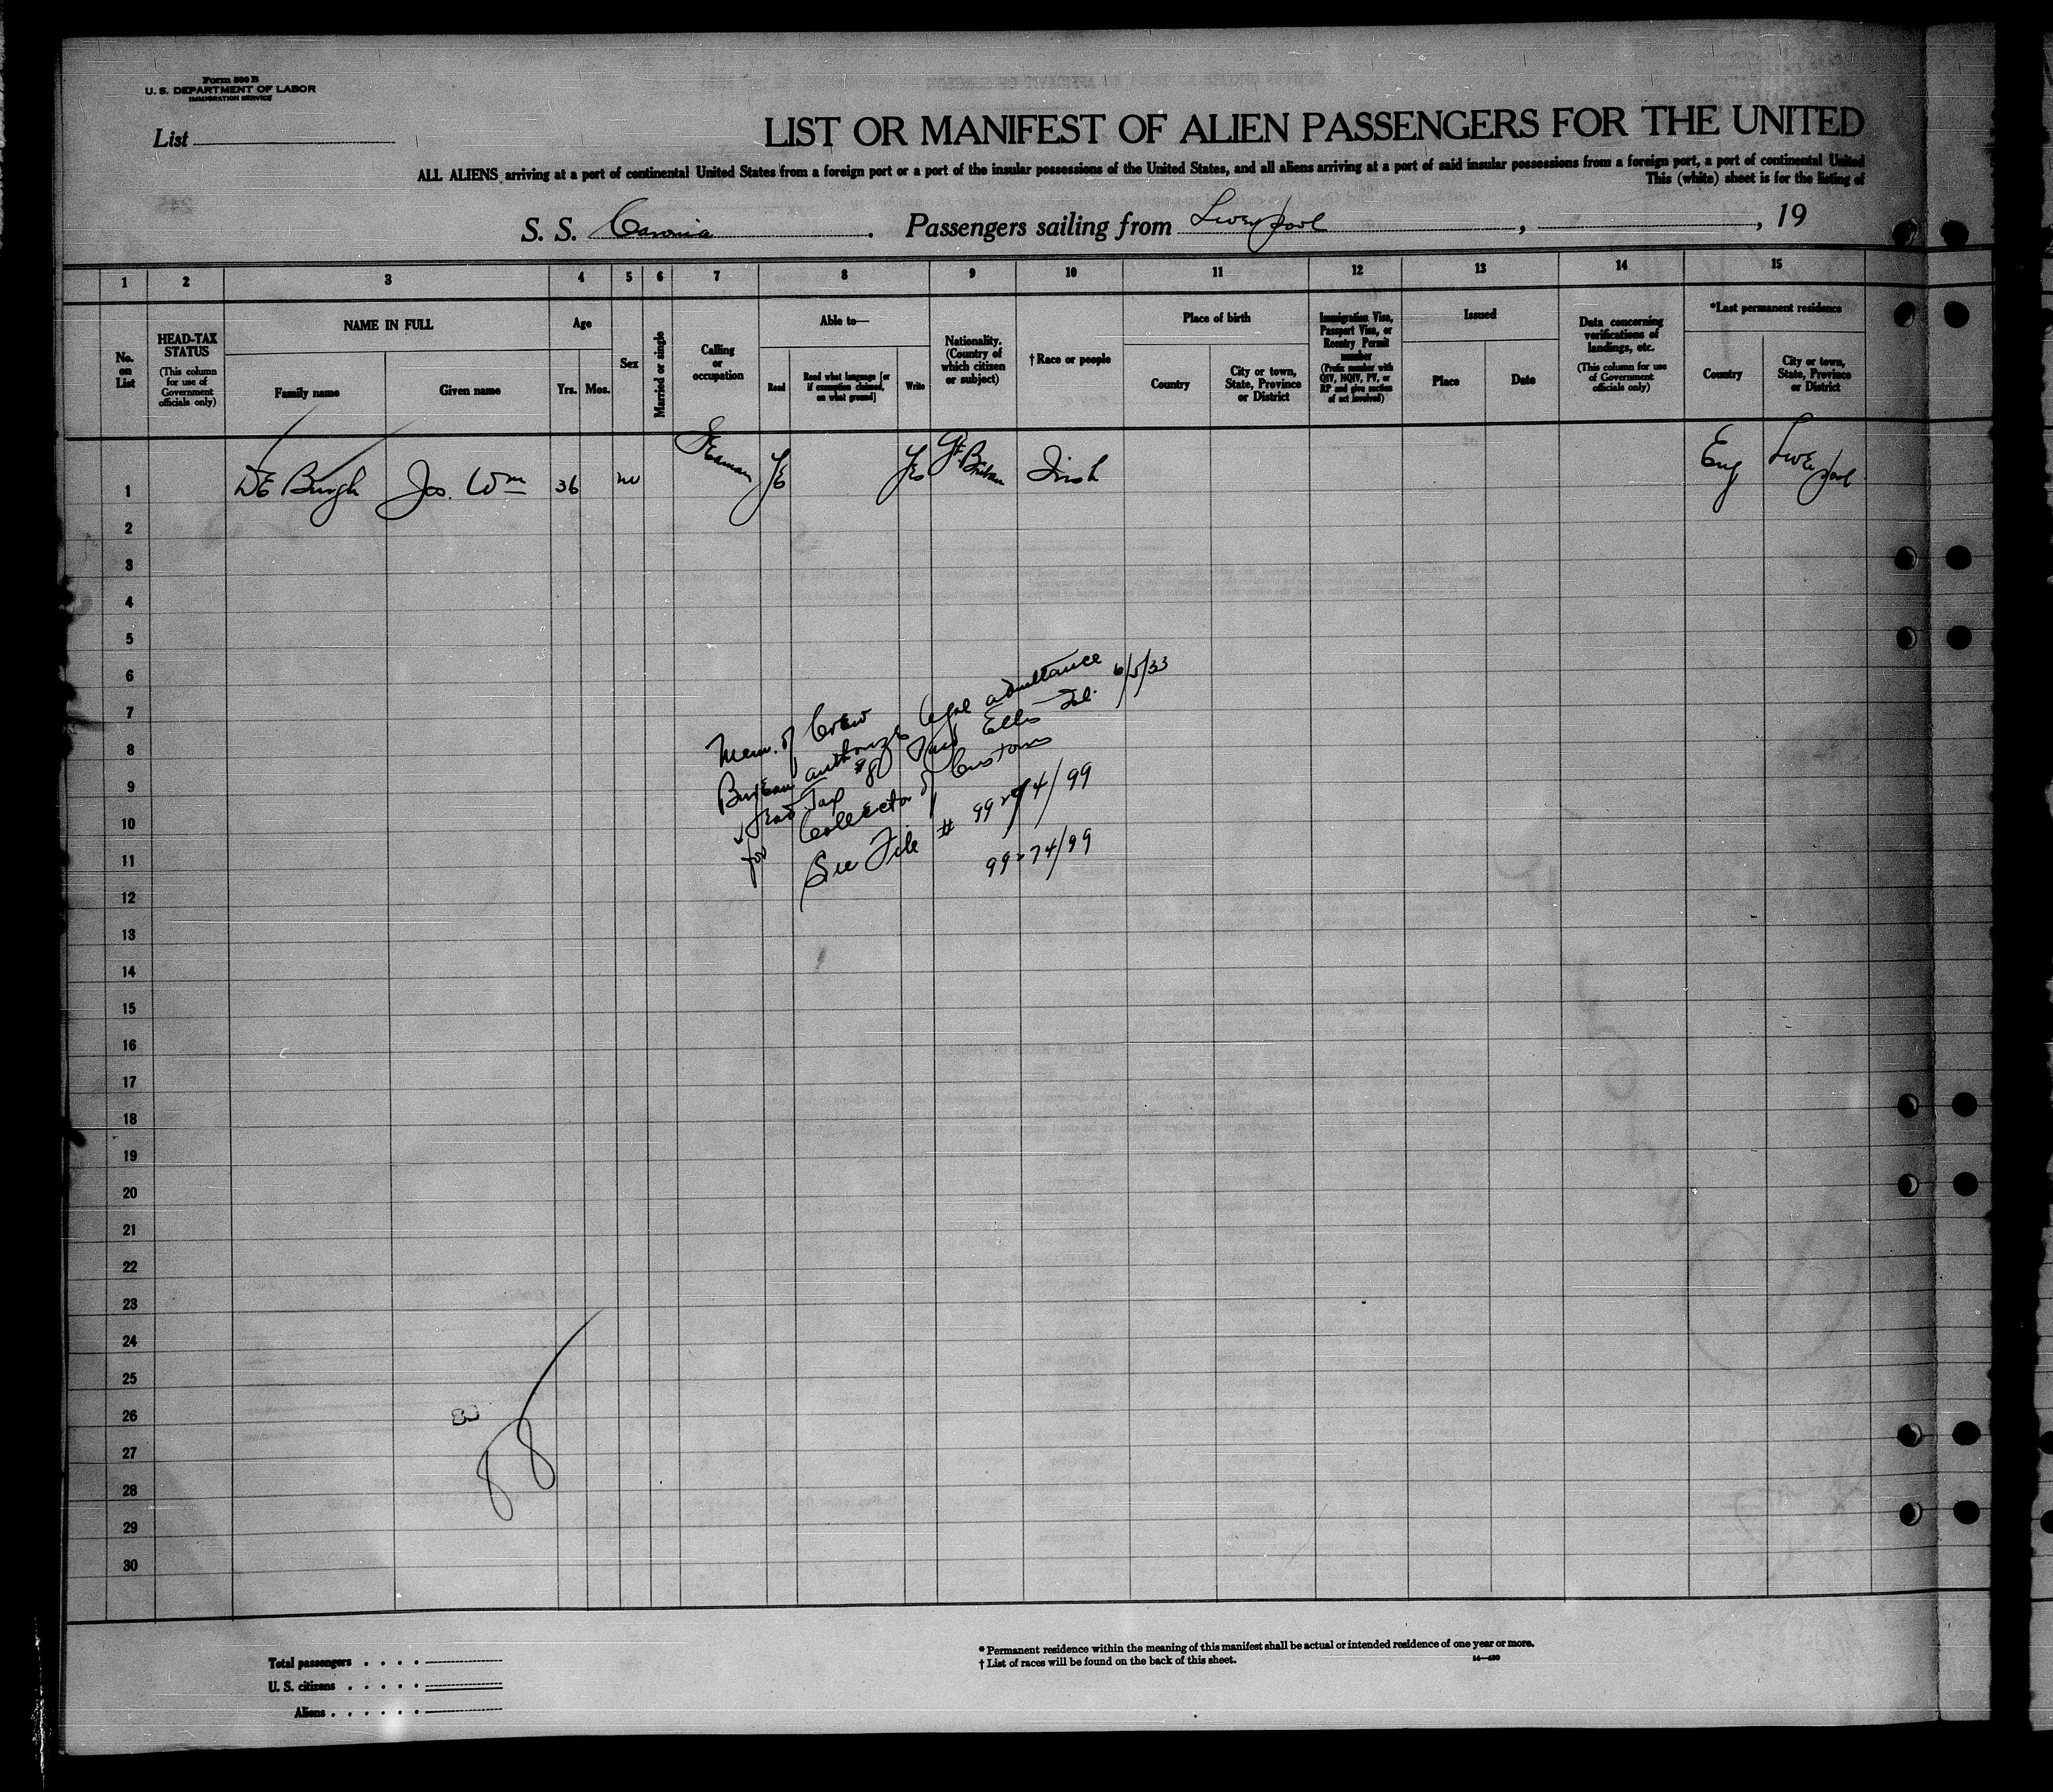 Form 500 B
U. S. DEPARTMENT OF LABOR
IMMIGRATION SERVICE
List
LIST OR MANIFEST OF ALIEN PASSENGERS FOR THE UNITED
ALL ALIENS arriving at a port of continental United States from a foreign port or a port of the insular possessions of the United States, and all aliens arriving at a port of said insular possessions from a foreign port, a port of continental United
This (white) sheet is for the listing of
S. S. Caronia. Passengers sailing from Liverpool, , 19
1 2 3 4 5 6 7 8 9 10 11 12 13 14 15
No. on List
HEAD-TAX STATUS
(This column for use of Government officials only)
NAME IN FULL
Family name
Given name
Age
Yrs. Mos.
Sex
Married or single
Calling or occupation
Able to—
Read
Read what language [or if exemption claimed, on what ground]
Write
Nationality. (Country of which citizen or subject)
†Race or people
Place of birth
Country
City or town, State, Province or District
Immigration Visa, Passport Visa, or Reentry Permit number
(Prefix number with QIV, NQIV, PV, or RP and give section of act involved)
Issued
Place
Date
Data concerning verifications of landings, etc.
(This column for use of Government officials only)
*Last permanent residence
Country
City or town, State, Province or District
1 DE Burgh Jos. Wm 36 m Seaman Ye Yes Gt Britain Irish Eng Liverpool
2
3
4
5
6
7
8
9
10
11
12
13
14
15
16
17
18
19
20
21
22
23
24
25
26
27
28
29
30
Mem. of Crew
Bureau authorizes legal admittance
Head Tax $8 Paid Ellis Isl. 6/5/33
for Collector of Customs
See File # 99274/99
99274/99
88
Total passengers
U. S. citizens
Aliens
* Permanent residence within the meaning of this manifest shall be actual or intended residence of one year or more.
† List of races will be found on the back of this sheet.
14—430